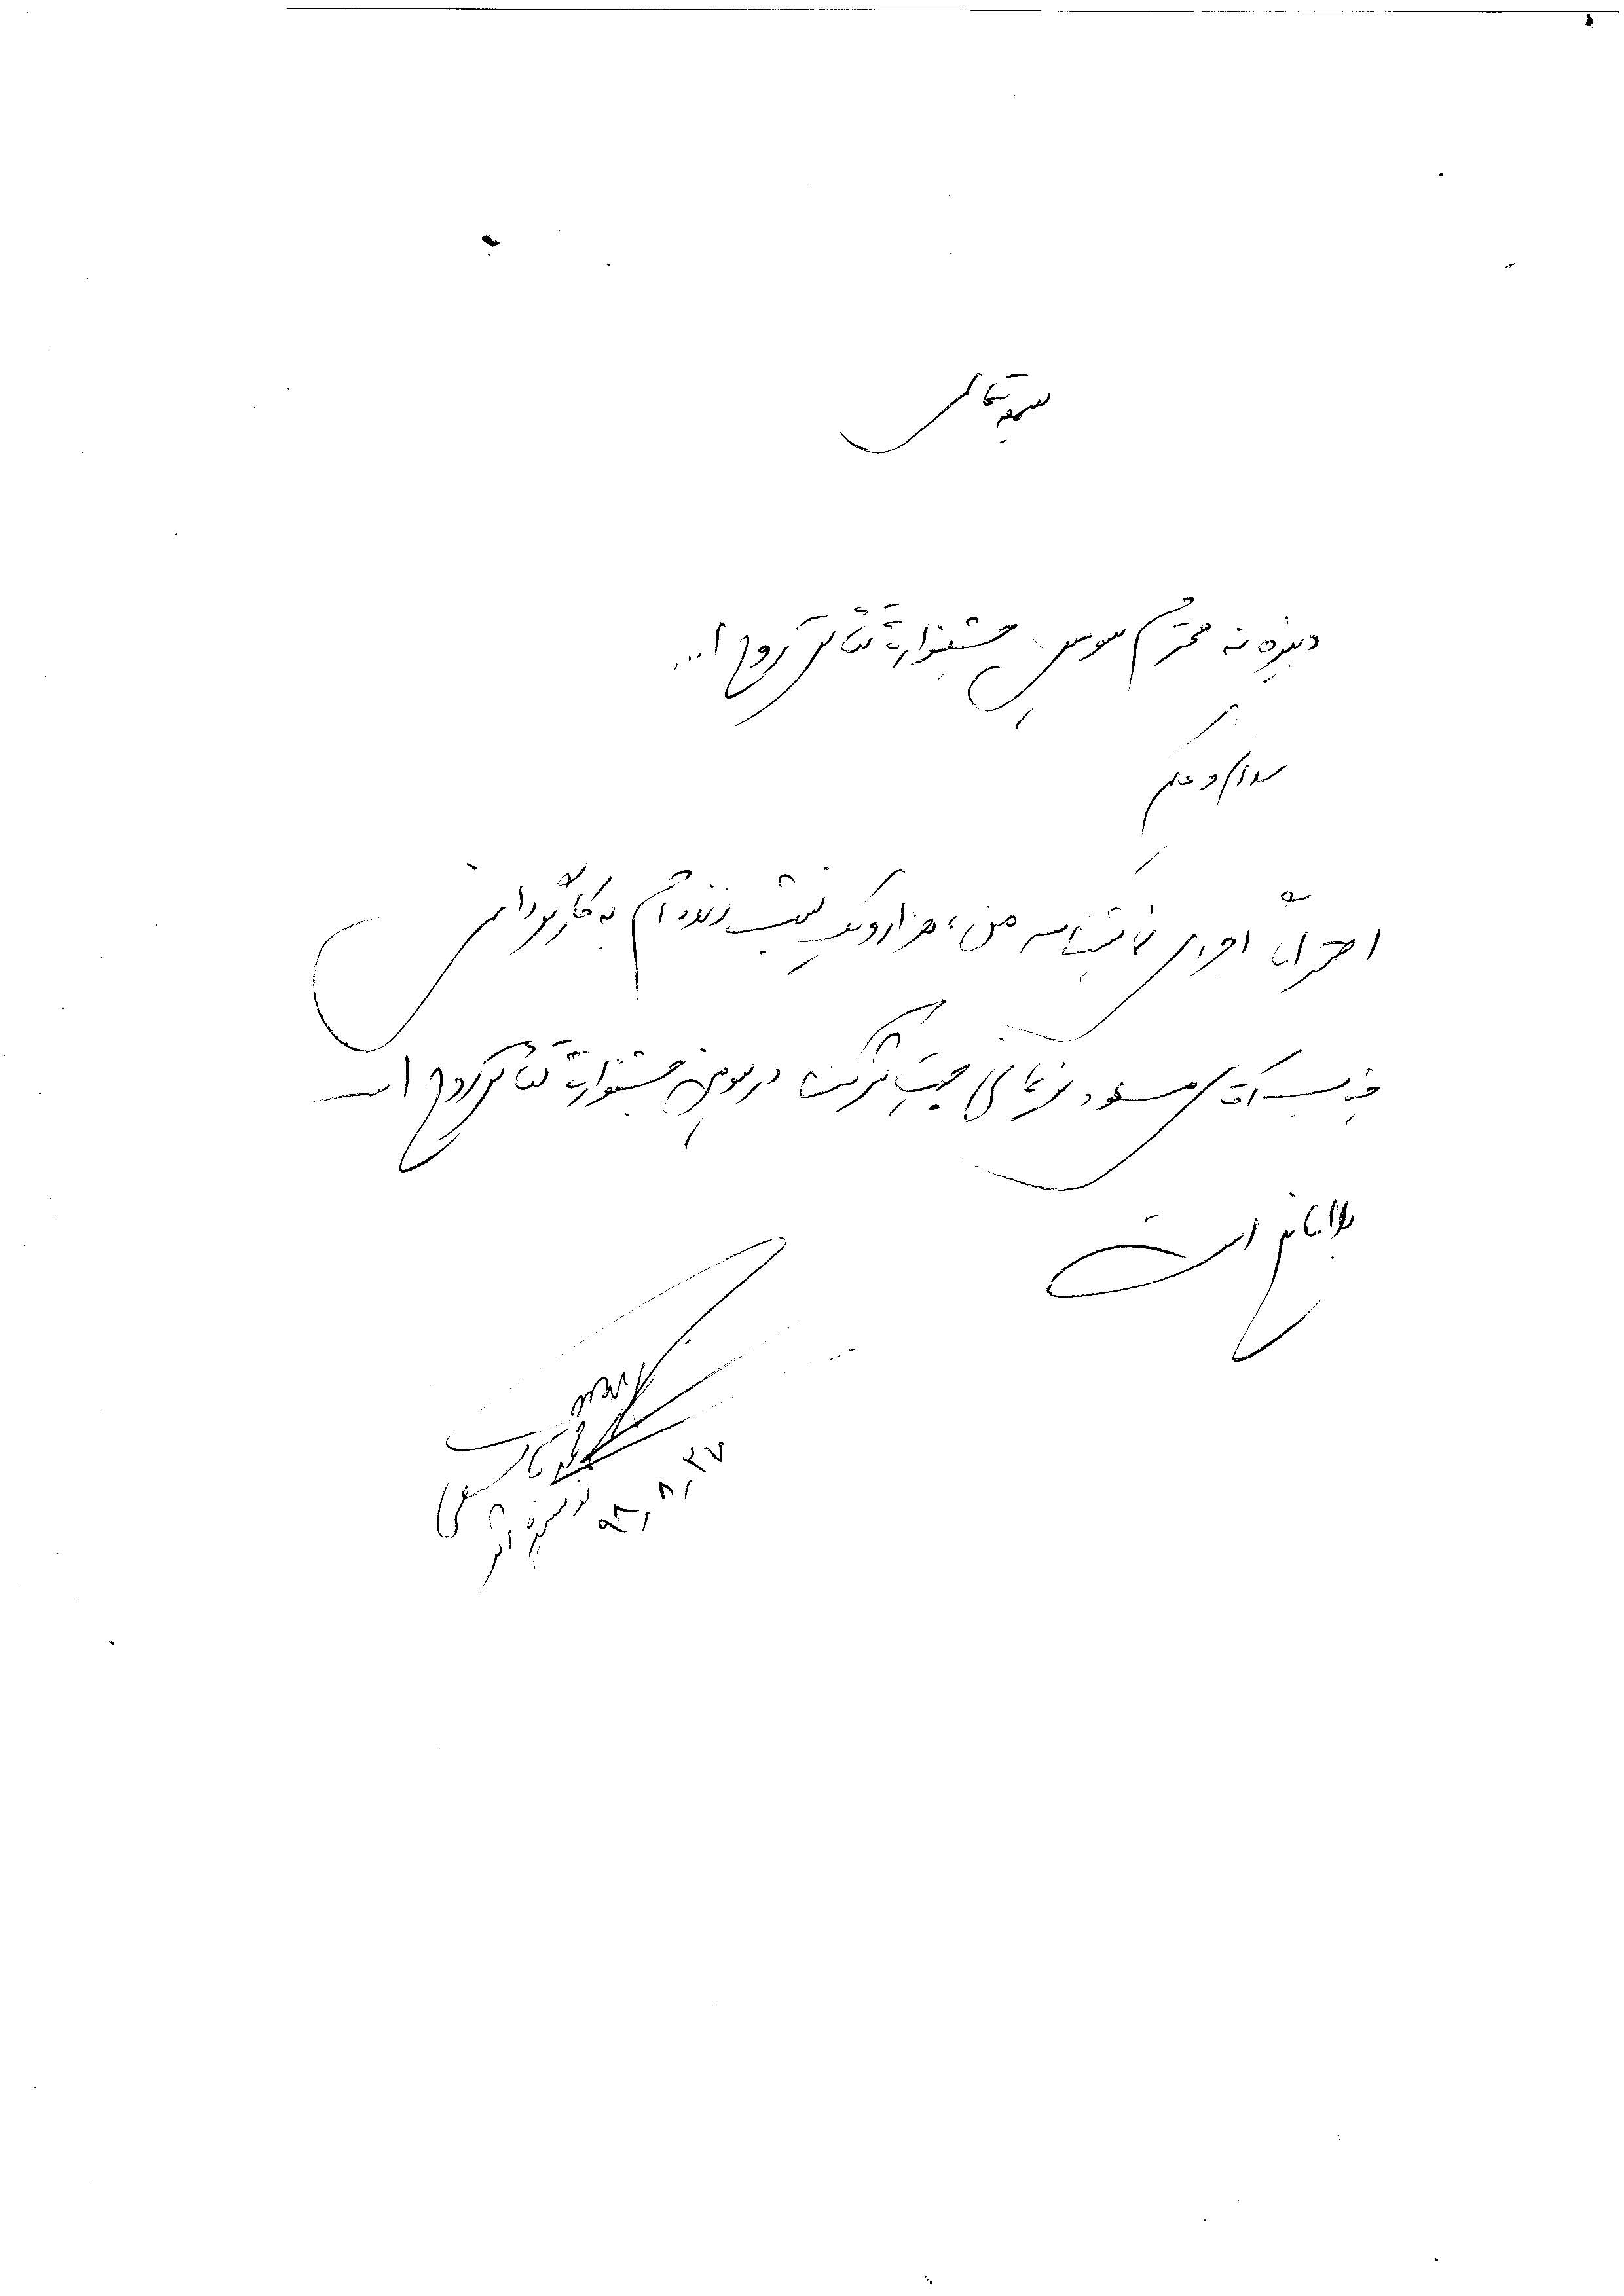 بسمه تعالی
دبیرخانه محترم سومین جشنواره تئاتر روح ا...
سلام و علیکم
احتراماً اجرای نمایشنامه من، هزار و یک شب زنده‌ام به کارگردانی
جناب آقای مسعود جهت شرکت در سومین جشنواره تئاتر روح ا...
بلامانع است
۹۳,۸,۲۷
نویسنده اثر